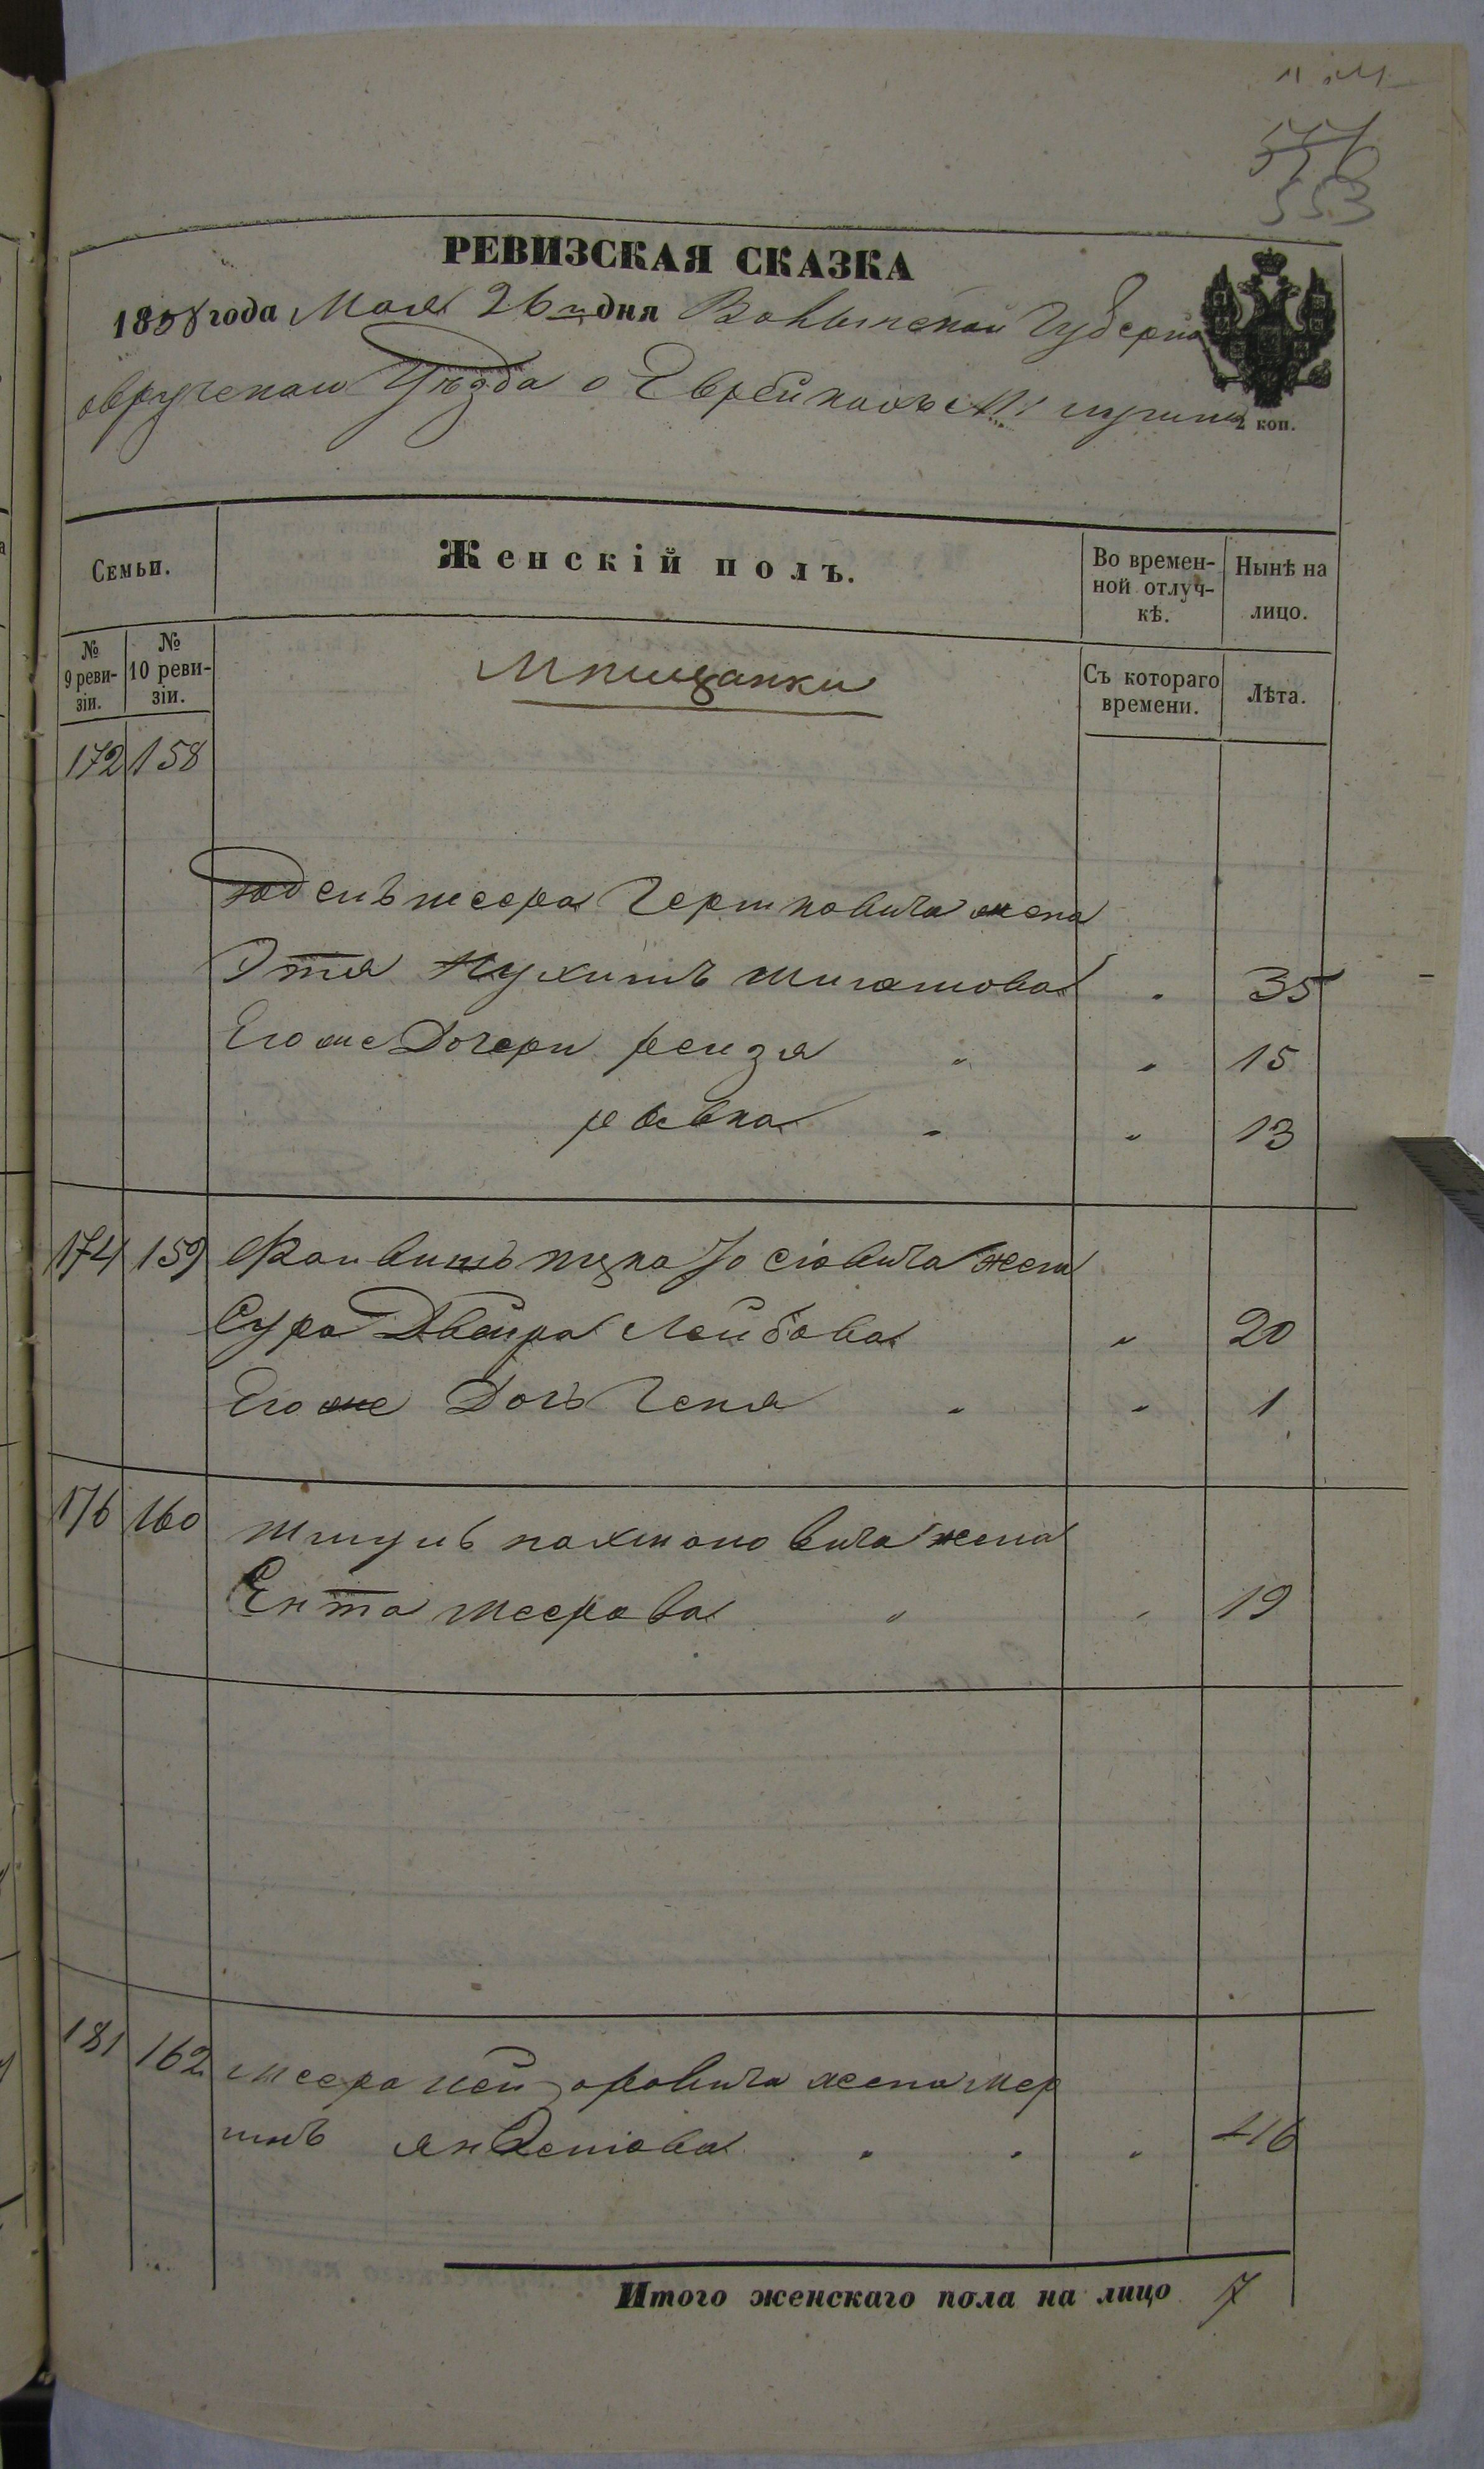 553
РЕВИЗСКАЯ СКАЗКА
1858 года Мая 26 дня Волынской Губерніи
овручскаго Уѣзда о Еврейкахъ М:
2 коп.
Семьи.
Женскій полъ.
Во времен-
ной отлуч-
кѣ.
Нынѣ на
лицо.
№
9 реви-
зіи.
№
10 реви-
зіи.
Мѣщанки
Съ котораго
времени.
Лѣта.
172 158
меера Гершковича жена
Этя 35
Его же Дочери рейзя " " 15
ривка " " 13
174 159 Іосіовича жена
Сура Двейра Лейбова " 20
Его же Дочь Геня " " 1
176 160 нахмановича жена
Ента меерова " " 19
181 162 меера лейзоровича жена
" " " 46
Итого женскаго пола на лицо 7